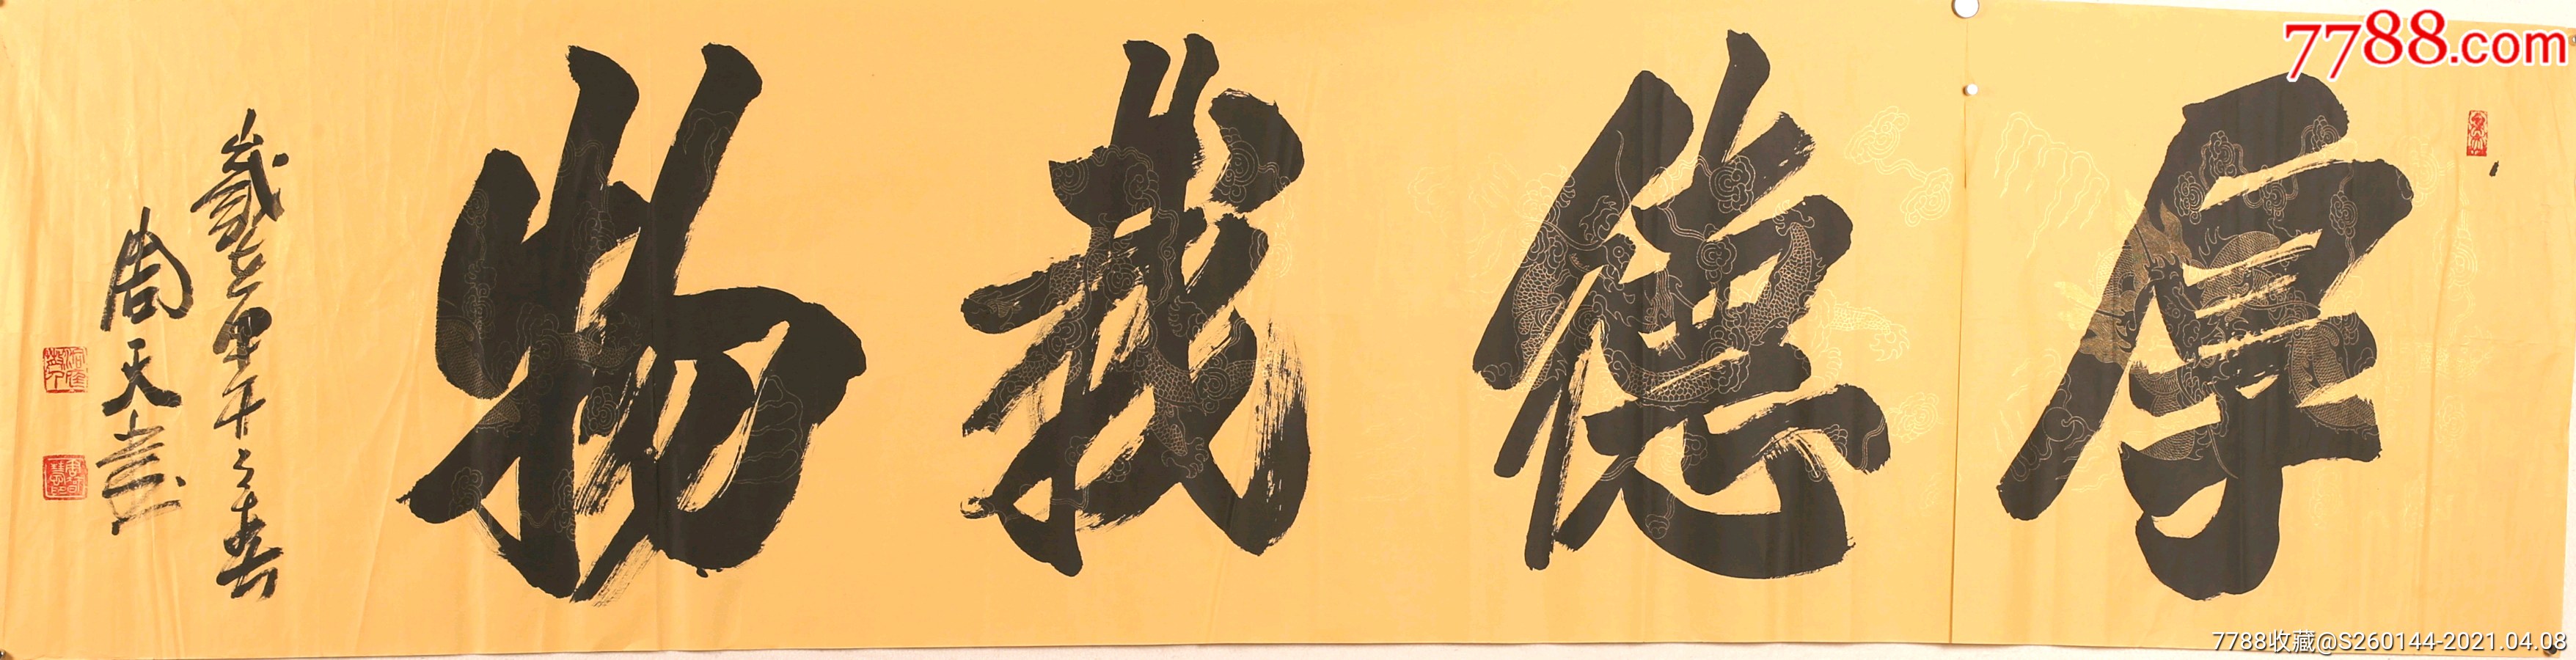 厚德载物
岁在甲午之春
周天
7788.com
7788收藏@S260144-2021.04.08